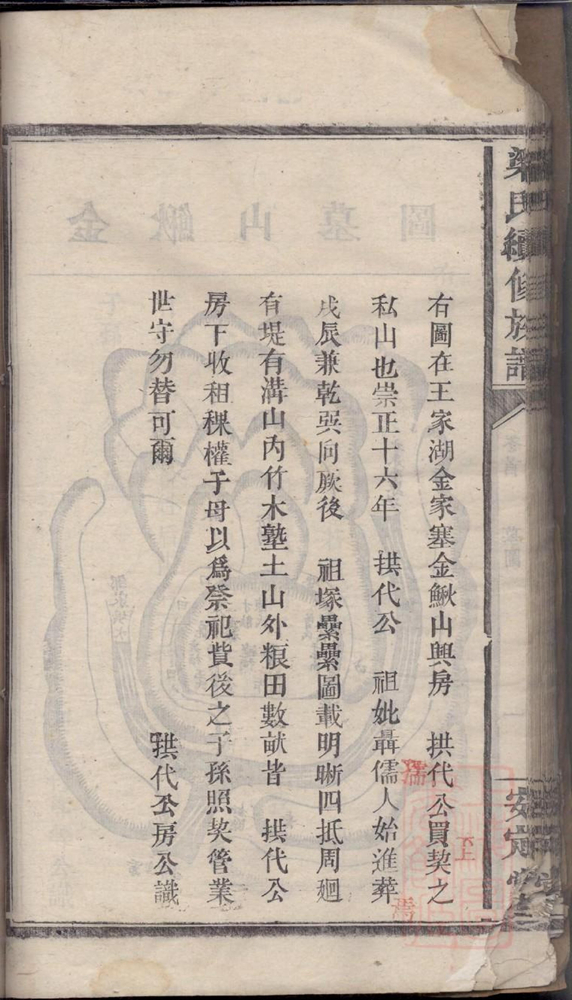 梁氏續修族譜
墓圖
一
安定堂
右圖在王家湖金家塞金鰍山興房 拱代公買契之
私山也崇正十六年 拱代公 祖妣聶儒人始進葬
戌辰兼乾巽向厥後 祖塚纍纍圖載明晰四抵周廻
有堤有溝山內竹木塾土山外粮田數畝皆 拱代公
房下收租稞權子母以爲祭祀費後之子孫照契管業
世守勿替可爾 拱代公房公識